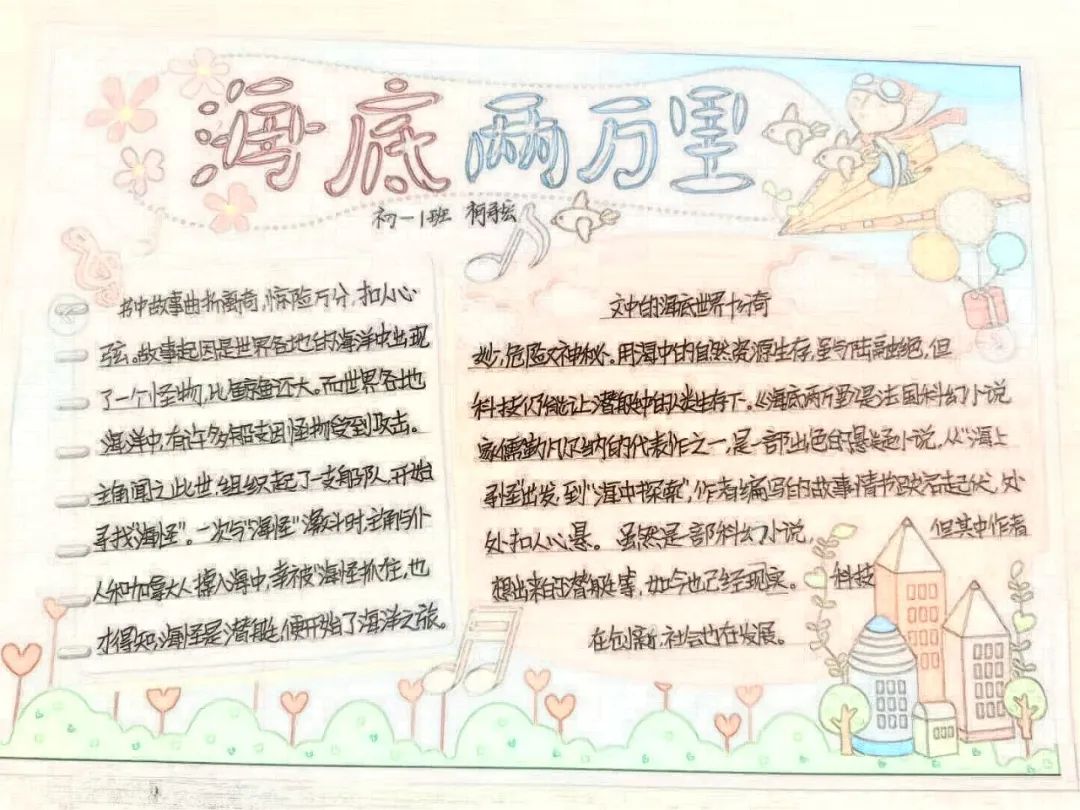 海底两万里
初一1班
书中故事曲折离奇,惊险万分,扣人心
弦。故事起因是世界各地的海洋中出现
了一个怪物,比鲸鱼还大。而世界各地
海洋中,有许多船支因怪物受到攻击。
主角闻之此世,组织起了一支船队,开始
寻找“海怪”。一次与“海怪”激斗时,主角与仆
人和加拿大人掉入海中,幸被“海怪”抓住,也
才得知,海怪是潜艇,便开始了海洋之旅。
文中的海底世界十分奇
妙,危险又神秘。用海中的自然资源生存,与陆隔绝,但
科技仍能让潜艇中的人类生存下。《海底两万里》是法国科幻小说
家儒勒凡尔纳的代表作之一,是一部出色的悬疑小说,从“海上
寻怪”出发,到“海中探索”,作者编写的故事情节跌宕起伏,处
处扣人心悬。虽然是一部科幻小说,但其中作者
想出来的潜艇等,如今也已经现实。科技
在创新,社会也在发展。